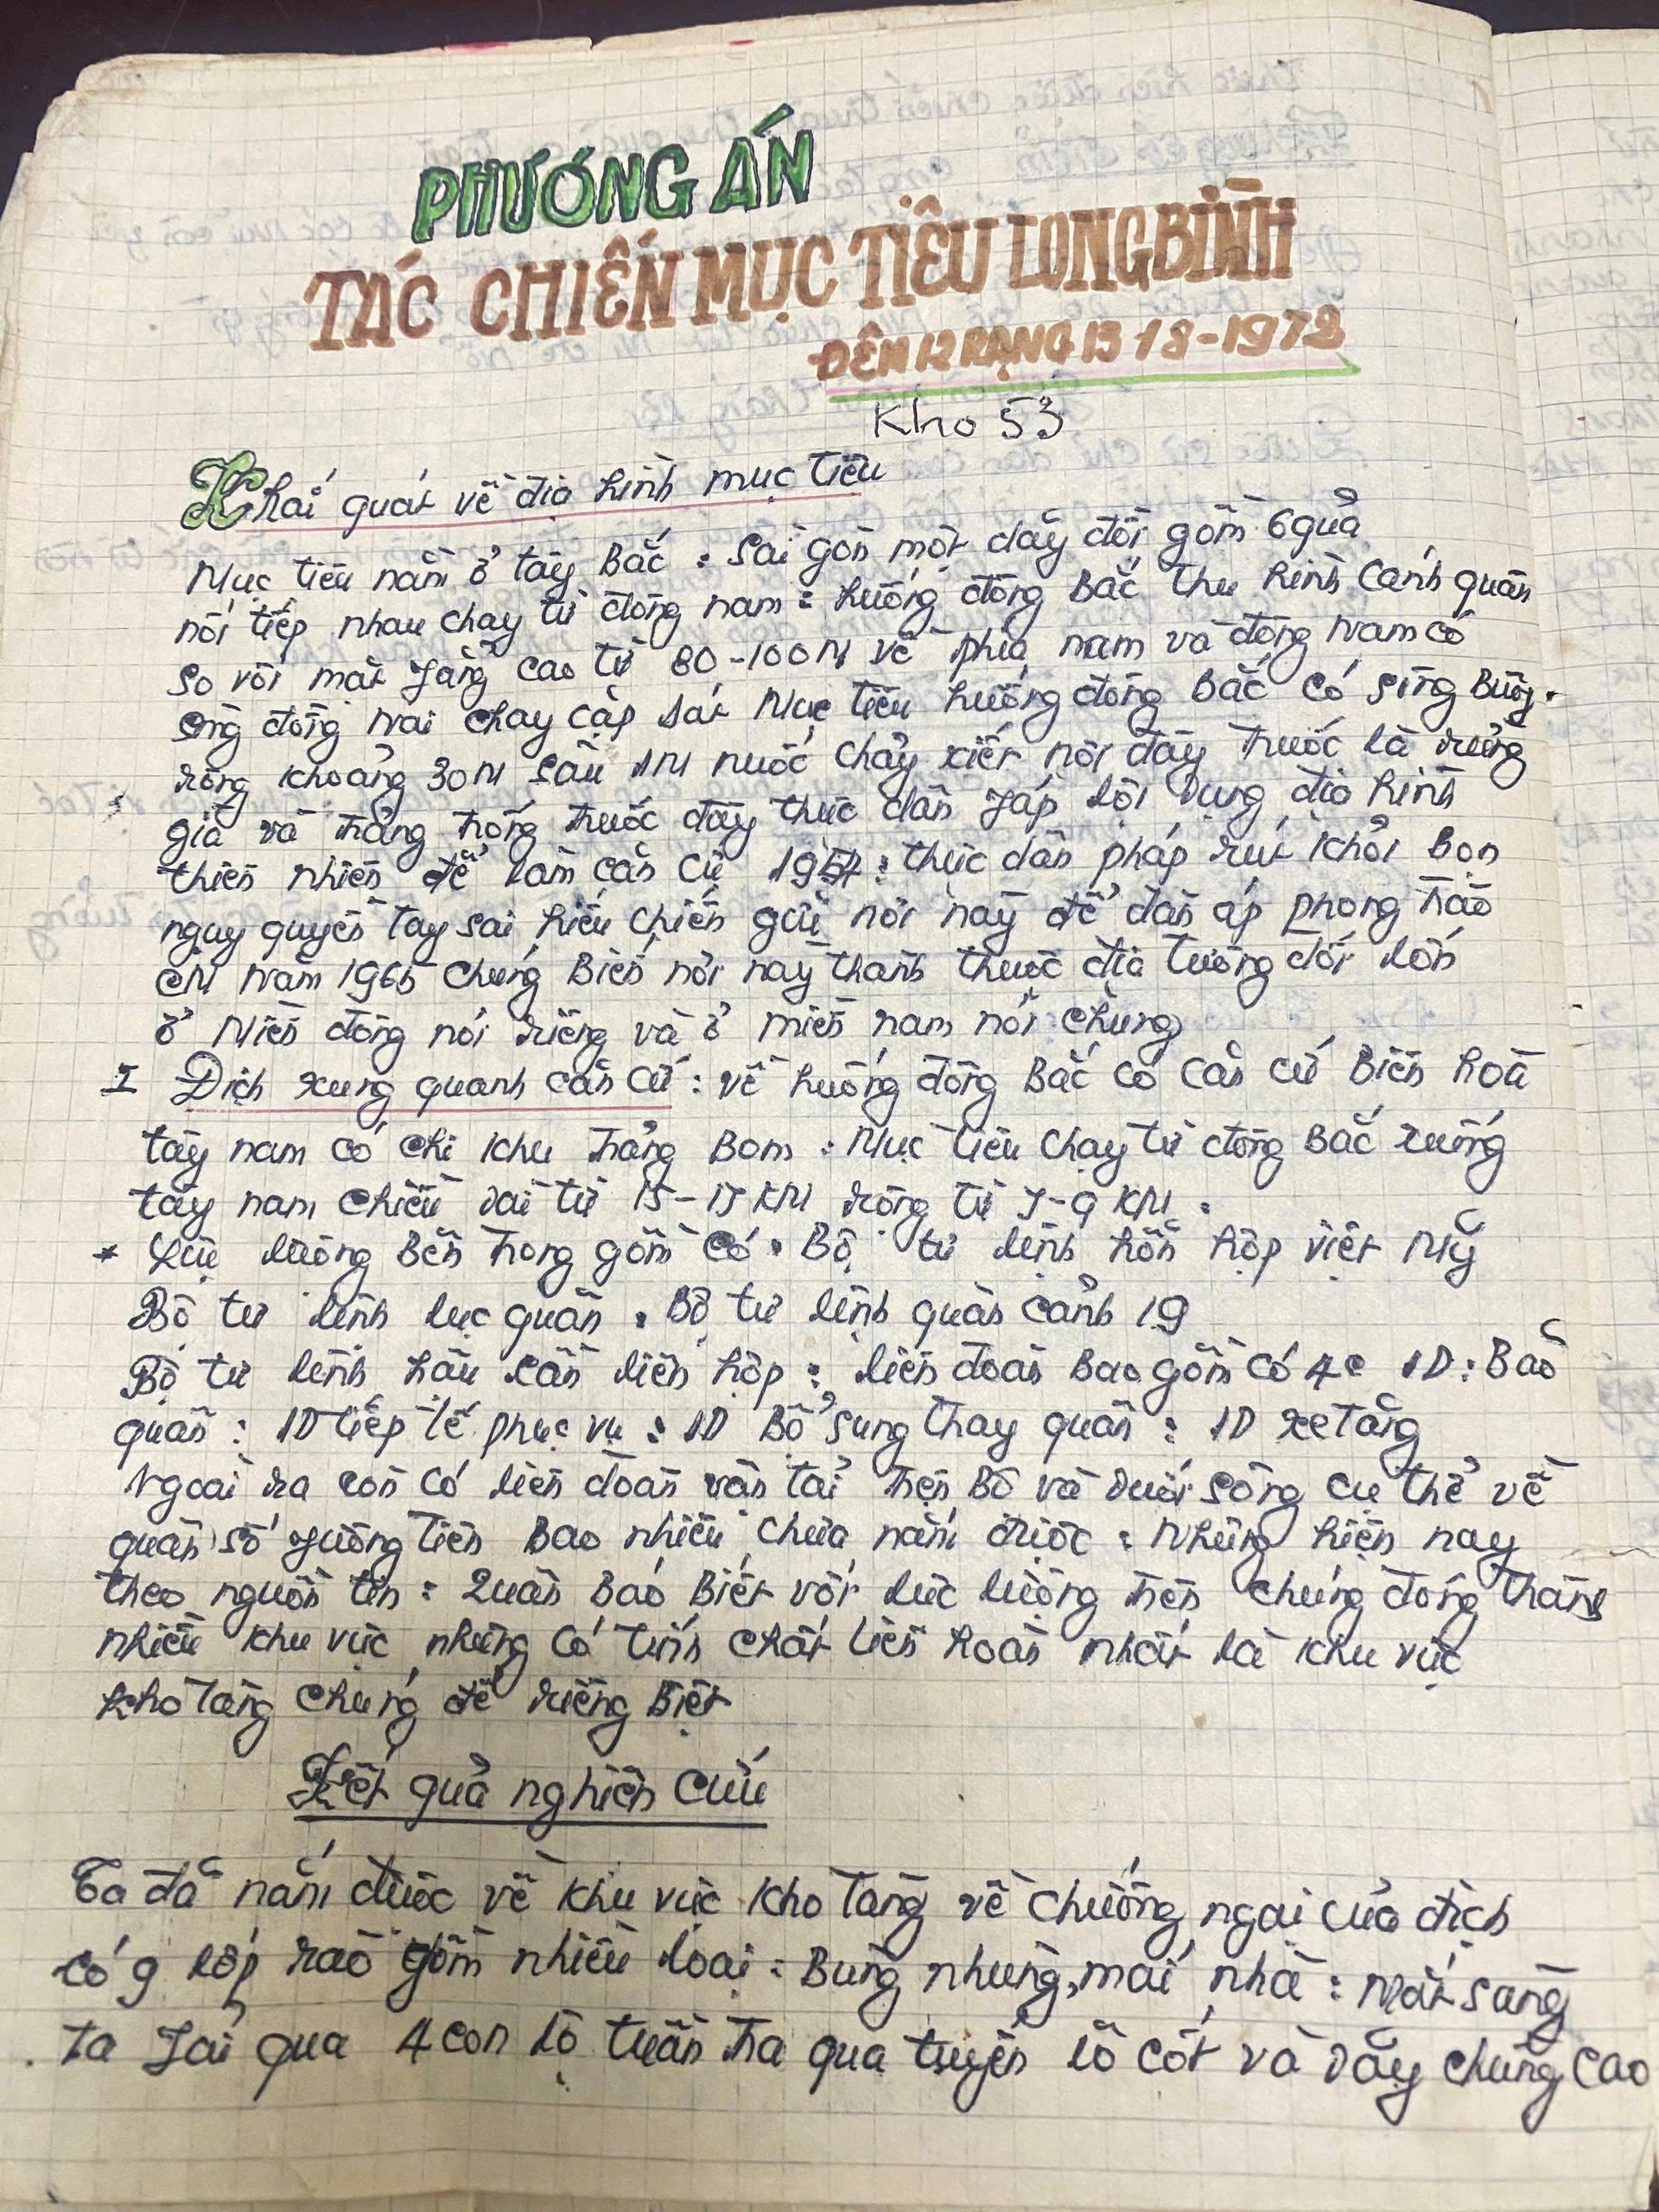 PHƯƠNG ÁN
TÁC CHIẾN MỤC TIÊU LONG BÌNH
ĐÊM 12 RẠNG 13 / 8 - 1972
Kho 53
Khái quát về địa hình mục tiêu
Mục tiêu nằm ở tây Bắc : Sài gòn một dãy đồi gồm 6 quả
nối tiếp nhau chạy từ đông nam : hướng đông Bắc thu hình cánh quân
so với mặt rằng cao từ 80 - 100 M về phía nam và đông nam có
sông đồng nai chạy cặp sát Mục tiêu hướng đông Bắc có sông Buông.
rộng khoảng 30 M sâu 1 M nước chảy xiết nơi đây trước là rừng
già và trảng trống trước đây thực dân Páp lợi dụng địa hình
thiên nhiên để làm căn cứ 1954 : thực dân pháp rút khỏi Bọn
nguỵ quyền tay sai hiếu chiến giữ nơi này để đàn áp phong trào
CM Năm 1965 chúng Biến nơi này thành thuộc địa tương đối lớn
ở Miền đông nói riêng và ở miền nam nói chung
I Địch xung quanh căn cứ : về hướng đông Bắc có căn cứ Biên hoà
tây nam có chi khu trảng Bom : Mục tiêu chạy từ đông Bắc xuống
tây nam chiều dài từ 15 - 17 KM rộng từ 7 - 9 KM .
* Lực lượng Bên trong gồm có . Bộ tư lệnh hỗn hợp việt Mỹ
Bộ tư lệnh lục quân . Bộ tư lệnh quân cảnh 19
Bộ tư lệnh hậu cần liên hợp : liên đoàn Bao gồm có 4c 1D : Bảo
quân : 1D tiếp tế phục vụ : 1D Bổ sung thay quân : 1D xe tăng
Ngoài ra còn có liên đoàn vận tải trên Bộ và dưới sông cụ thể về
quân số rường tiện Bao nhiêu chưa nắm được : Nhưng hiện nay
theo nguồn tin : Quân Báo Biết với lực lượng trên chúng đóng thành
nhiều khu vực nhưng có tính chất liên hoàn nhất là khu vực
kho tàng chúng để riêng Biệt
Kết quả nghiên cứu
Ta đã nắm được về khu vực kho tàng về chướng ngại của địch
có 9 lớp rào gồm nhiều loại : Bùng nhùng, mái nhà : Mắt sàng
ta Jải qua 4 con lộ tuần tra qua tuyến lô cốt và dãy chùng cao